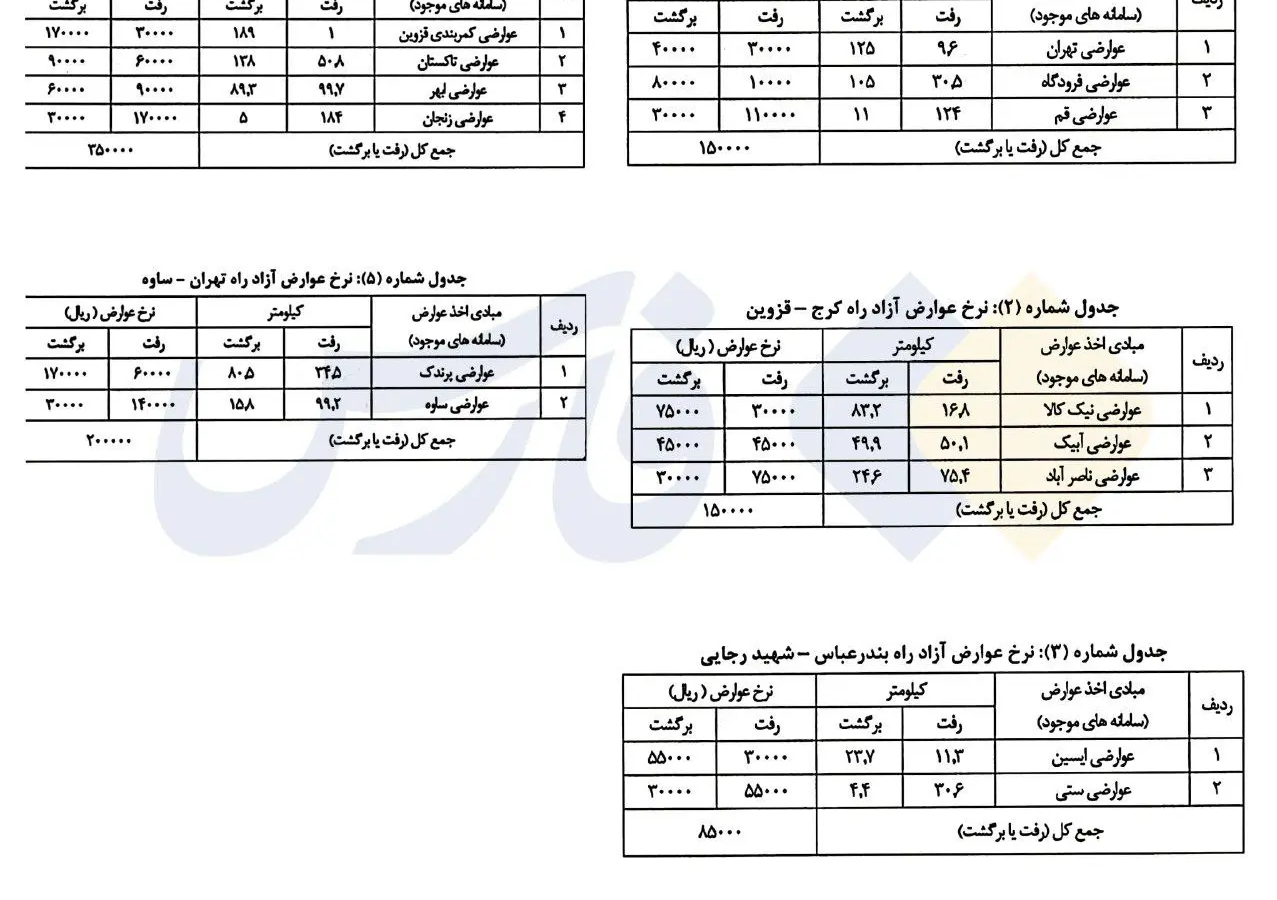 ردیف (سامانه های موجود) رفت برگشت رفت برگشت
۱ عوارضی تهران ۹,۶ ۱۲۵ ۳۰۰۰۰ ۴۰۰۰۰
۲ عوارضی فرودگاه ۳۰.۵ ۱۰۵ ۱۰۰۰۰ ۸۰۰۰۰
۳ عوارضی قم ۱۲۴ ۱۱ ۱۱۰۰۰۰ ۳۰۰۰۰
جمع کل (رفت یا برگشت) ۱۵۰۰۰۰
جدول شماره (۲): نرخ عوارض آزاد راه کرج – قزوین
ردیف مبادی اخذ عوارض کیلومتر نرخ عوارض (ریال)
(سامانه های موجود) رفت برگشت رفت برگشت
۱ عوارضی نیک کالا ۱۶,۸ ۸۳,۲ ۳۰۰۰۰ ۷۵۰۰۰
۲ عوارضی آبیک ۵۰,۱ ۴۹,۹ ۴۵۰۰۰ ۴۵۰۰۰
۳ عوارضی ناصر آباد ۷۵,۴ ۲۴,۶ ۷۵۰۰۰ ۳۰۰۰۰
جمع کل (رفت یا برگشت) ۱۵۰۰۰۰
جدول شماره (۳): نرخ عوارض آزاد راه بندرعباس – شهید رجایی
ردیف مبادی اخذ عوارض کیلومتر نرخ عوارض (ریال)
(سامانه های موجود) رفت برگشت رفت برگشت
۱ عوارضی ایسین ۱۱,۳ ۲۳,۷ ۳۰۰۰۰ ۵۵۰۰۰
۲ عوارضی ستی ۳۰,۶ ۴,۴ ۵۵۰۰۰ ۳۰۰۰۰
جمع کل (رفت یا برگشت) ۸۵۰۰۰
(سامانه های موجود) رفت برگشت رفت برگشت
۱ عوارضی کمربندی قزوین ۱ ۱۸۹ ۳۰۰۰۰ ۱۷۰۰۰۰
۲ عوارضی تاکستان ۵۰.۸ ۱۳۸ ۶۰۰۰۰ ۹۰۰۰۰
۳ عوارضی ابهر ۹۹,۷ ۸۹,۳ ۹۰۰۰۰ ۶۰۰۰۰
۴ عوارضی زنجان ۱۸۴ ۵ ۱۷۰۰۰۰ ۳۰۰۰۰
جمع کل (رفت یا برگشت) ۳۵۰۰۰۰
جدول شماره (۵): نرخ عوارض آزاد راه تهران – ساوه
ردیف مبادی اخذ عوارض کیلومتر نرخ عوارض (ریال)
(سامانه های موجود) رفت برگشت رفت برگشت
۱ عوارضی پرندک ۳۴.۵ ۸۰.۵ ۶۰۰۰۰ ۱۷۰۰۰۰
۲ عوارضی ساوه ۹۹,۲ ۱۵.۸ ۱۴۰۰۰۰ ۳۰۰۰۰
جمع کل (رفت یا برگشت) ۲۰۰۰۰۰
فارس